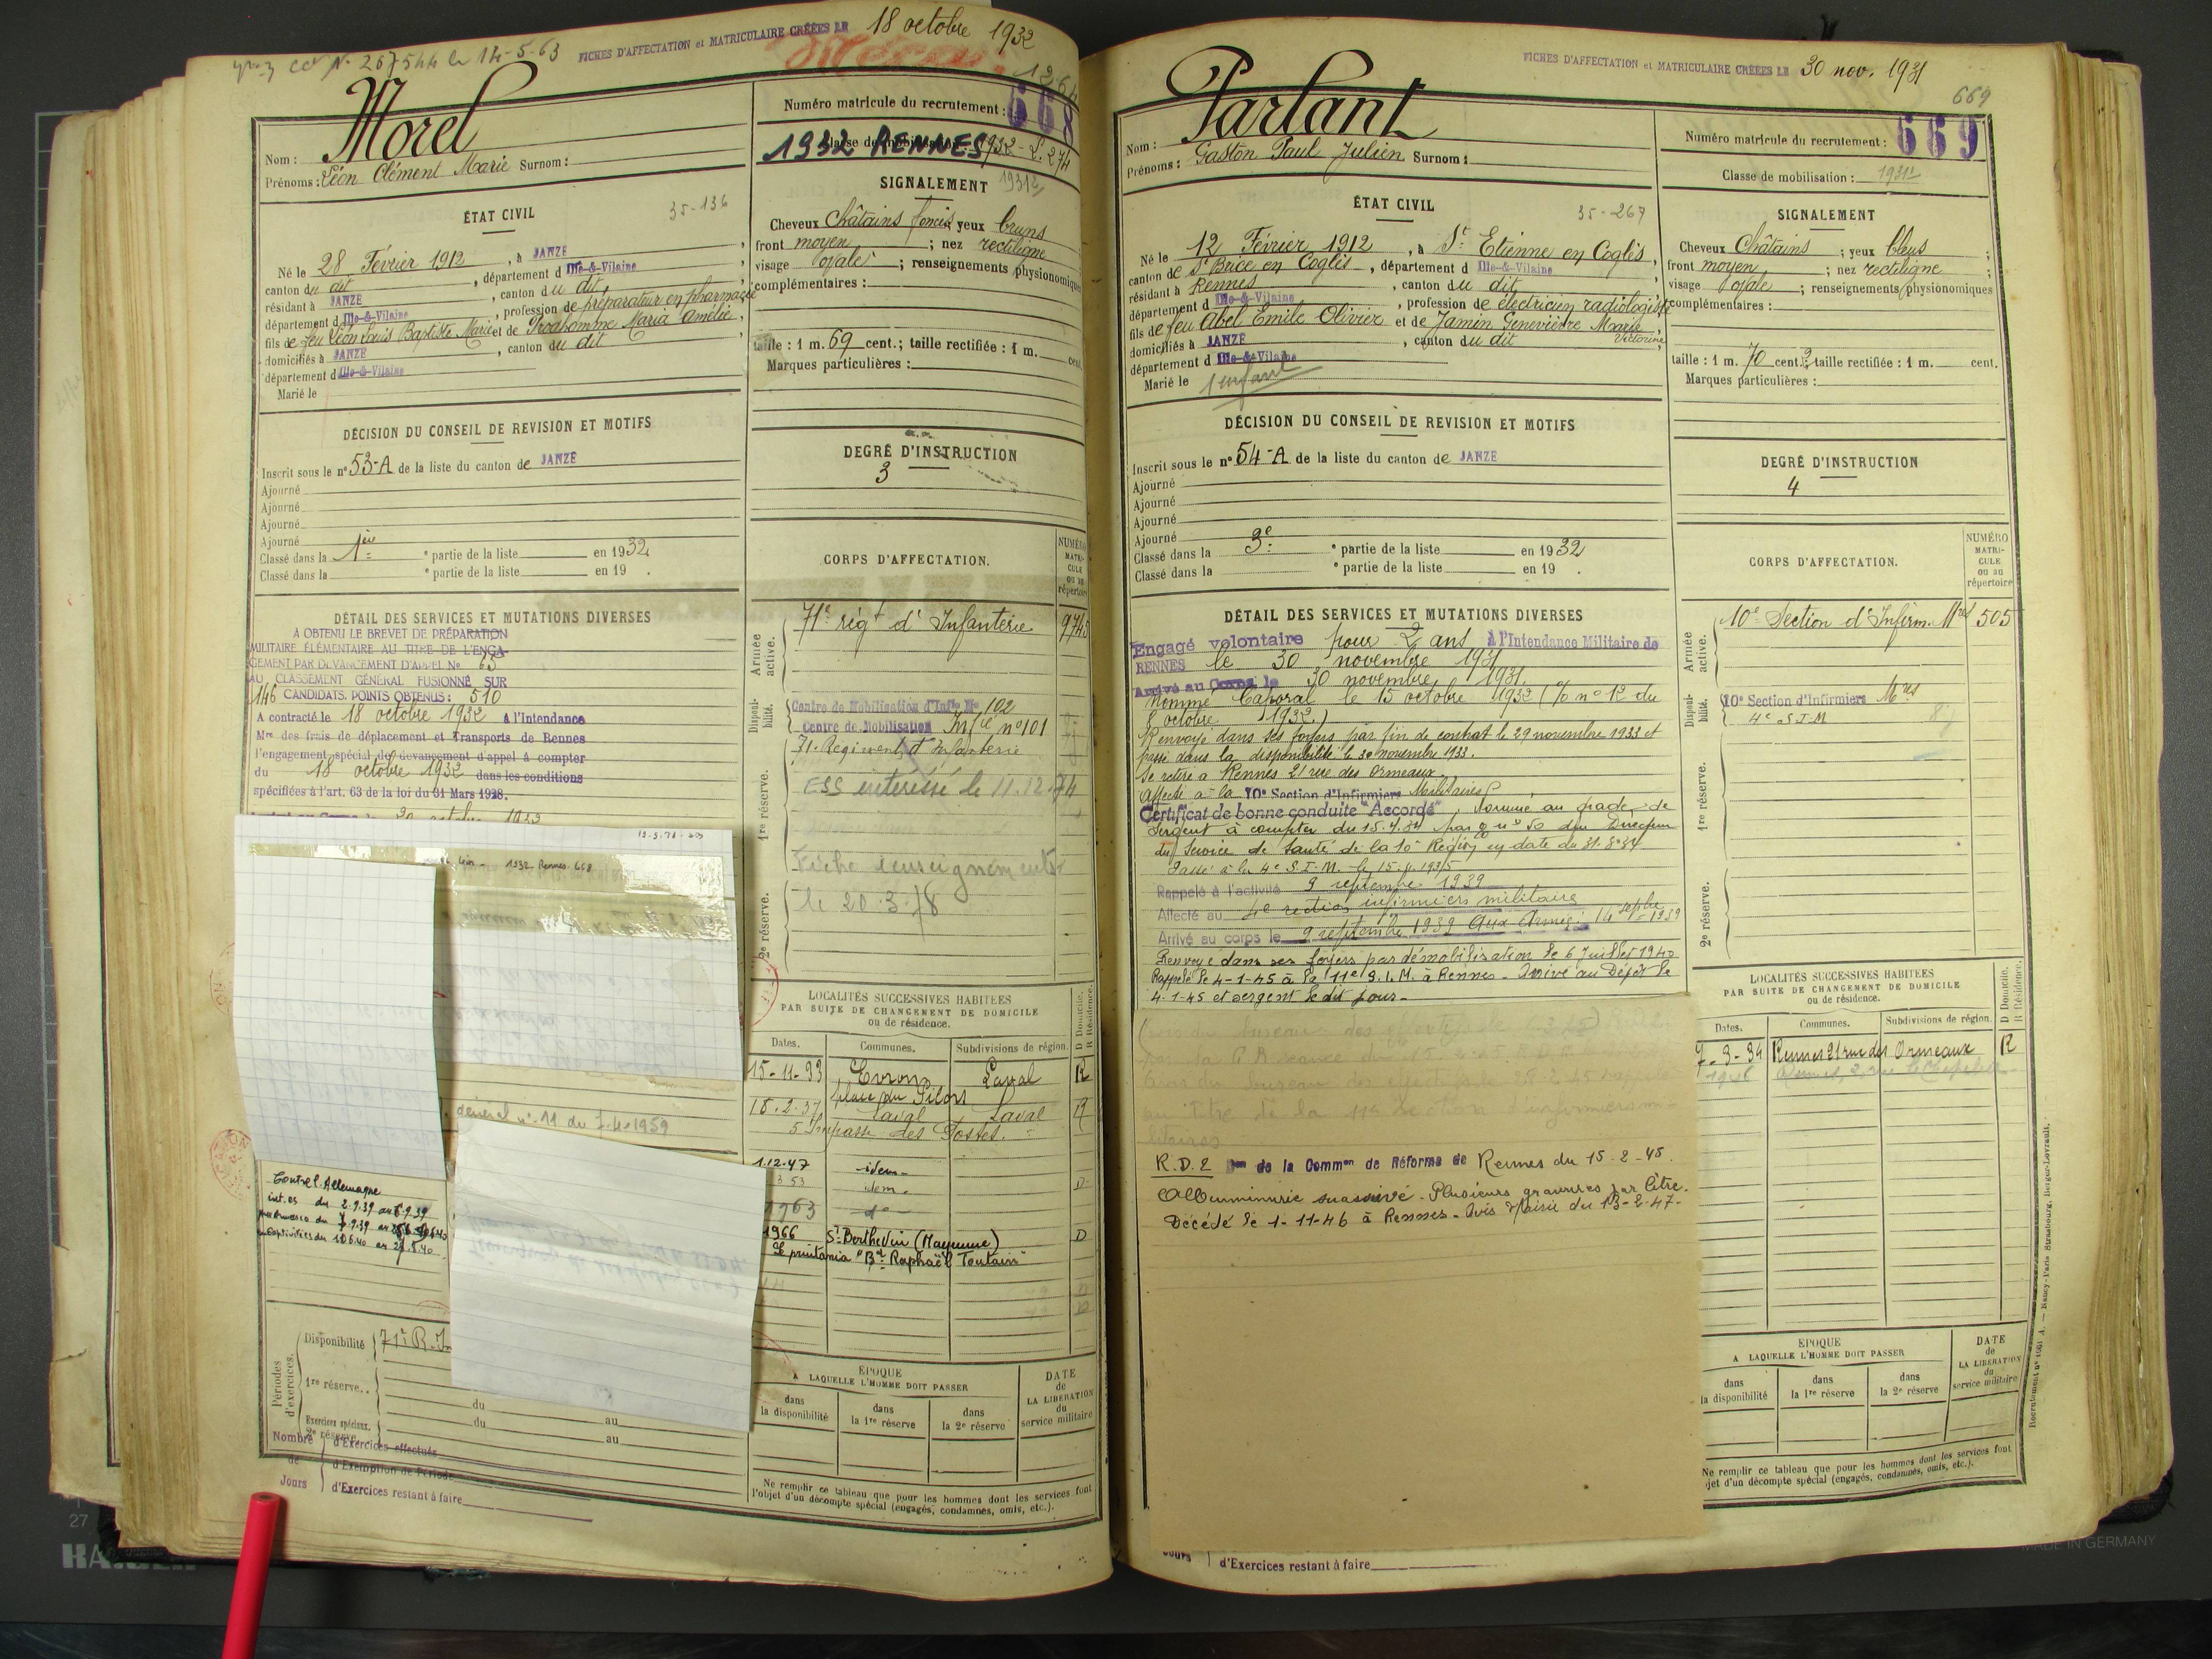 FICHES D'AFFECTATION et MATRICULAIRE CRÉÉES LE 18 octobre 1932
N° 267544 le 14-5-63
Morel
Nom :
Prénoms : Léon Clément Marie Surnom :
Numéro matricule du recrutement : 668
Classe de mobilisation : 1932
1932 RENNES
ÉTAT CIVIL
35-136
Né le 28 Février 1912, à JANZÉ
canton du dit, département d Ille-&-Vilaine
résidant à JANZÉ, canton du dit,
département d Ille-&-Vilaine, profession de préparateur en pharmacie
fils de feu Léon Louis Baptiste Marie et de Prodhomme Maria Amélie,
domiciliés à JANZÉ, canton du dit
département d Ille-&-Vilaine
Marié le
SIGNALEMENT
Cheveux Châtains foncés yeux bruns
front moyen ; nez rectiligne
visage ovale ; renseignements physionomiques
complémentaires :
taille : 1 m. 69 cent.; taille rectifiée : 1 m. cent.
Marques particulières :
DÉCISION DU CONSEIL DE REVISION ET MOTIFS
Inscrit sous le n° 53-A de la liste du canton de JANZÉ
Ajourné
Ajourné
Ajourné
Ajourné
Classé dans la 1ère partie de la liste en 1932
Classé dans la e partie de la liste en 19 .
DEGRÉ D'INSTRUCTION
3
DÉTAIL DES SERVICES ET MUTATIONS DIVERSES
A OBTENU LE BREVET DE PRÉPARATION
MILITAIRE ÉLÉMENTAIRE AU TITRE DE L'ENGA-
GEMENT PAR DEVANCEMENT D'APPEL N° 65
AU CLASSEMENT GÉNÉRAL FUSIONNÉ SUR
146 CANDIDATS. POINTS OBTENUS : 510
A contracté le 18 octobre 1932 à l'Intendance
Mre des frais de déplacement et Transports de Rennes
l'engagement spécial de devancement d'appel à compter
du 18 octobre 1932 dans les conditions
spécifiées à l'art. 63 de la loi du 31 Mars 1928.
1932 Rennes 668
général n° 11 du 7-4-1959
Contre l'Allemagne
int. es du 2.9.39 au 6.9.39
Disponibilité 71e R.I.
1re réserve..
Périodes d'exercices.
Exercices spéciaux.
2e réserve
du au
du au
Nombre de Jours
d'Exercices effectués
d'Exemption de Période
d'Exercices restant à faire
CORPS D'AFFECTATION.
NUMÉRO MATRICULE ou au répertoire
Armée active.
71e régt d'Infanterie 9745
Disponibilité.
Centre de Mobilisation d'Infie No 102
Centre de Mobilisation Infie n° 101
71. Regiment d'Infanterie
1re réserve.
ESS interessé le 11.12.74
2e réserve.
Fiche renseignements
le 20.3.78
LOCALITÉS SUCCESSIVES HABITÉES
PAR SUITE DE CHANGEMENT DE DOMICILE
ou de résidence.
D Domicile. R Résidence.
Dates. Communes. Subdivisions de région.
15-11-33 Evron, Laval R
place du Pilori
18.2.37 Laval Laval R
5 Impasse des Postes.
1.12.47 -idem-
3 53 idem. D
1963 d°
1966 St Berthevin (Mayenne) D
Le printania "Bd Raphaël Toutain"
ÉPOQUE
A LAQUELLE L'HOMME DOIT PASSER
DATE de LA LIBÉRATION du service militaire
dans la disponibilité
dans la 1re réserve
dans la 2e réserve
Ne remplir ce tableau que pour les hommes dont les services font
l'objet d'un décompte spécial (engagés, condamnés, omis, etc.).
FICHES D'AFFECTATION et MATRICULAIRE CRÉÉES LE 30 nov. 1931
669
Parlant
Nom :
Prénoms : Gaston Paul Julien Surnom :
Numéro matricule du recrutement : 669
Classe de mobilisation : 1931
ÉTAT CIVIL
35-267
Né le 12 Février 1912, à St Etienne en Coglès,
canton de St Brice en Coglès, département d Ille-&-Vilaine
résidant à Rennes, canton du dit
département d Ille-&-Vilaine, profession de électricien radiologiste
fils de feu Abel Emile Olivier et de Jamin Geneviève Marie Victorine,
domiciliés à JANZÉ, canton du dit
département d Ille-&-Vilaine
Marié le 1 enfant
SIGNALEMENT
Cheveux Châtains ; yeux bleus ;
front moyen ; nez rectiligne ;
visage ovale ; renseignements physionomiques
complémentaires :
taille : 1 m. 70 cent.; taille rectifiée : 1 m. cent.
Marques particulières :
DÉCISION DU CONSEIL DE REVISION ET MOTIFS
Inscrit sous le n° 54-A de la liste du canton de JANZÉ
Ajourné
Ajourné
Ajourné
Ajourné
Classé dans la 3e e partie de la liste en 1932
Classé dans la e partie de la liste en 19 .
DEGRÉ D'INSTRUCTION
4
DÉTAIL DES SERVICES ET MUTATIONS DIVERSES
Engagé volontaire pour 2 ans à l'Intendance Militaire de
RENNES le 30 novembre 1931
Arrivé au Corps le 30 novembre 1931.
Nommé Caporal le 15 octobre 1932 (% n° 12 du
8 octobre 1932.)
Renvoyé dans ses foyers par fin de contrat le 29 novembre 1933 et
passé dans la disponibilité le 30 novembre 1933.
Se retire à Rennes 21 rue des Ormeaux.
Affecté à la 10e Section d'Infirmiers Militaires
Certificat de bonne conduite "Accordé". Nommé au grade de
Sergent à compter du 15.4.34 par n° 50 du Directeur
du Service de Santé de la 10e Région en date du 31.3.34
Passé à la 4e S.I.M. le 15.4.1935
Rappelé à l'activité 9 septembre 1939
Affecté au 4e section infirmiers militaire
Arrivé au corps le 9 septembre 1939 Aux Armées : 14 sepbre 1939
Renvoyé dans ses foyers par démobilisation le 6 Juillet 1940
Rappelé le 4-1-45 à la 11e S.I.M. à Rennes - Arrivé au Dépôt le
4-1-45 et sergent le dit jour -
R.D.2 Don de la Common de Réforme de Rennes du 15-2-45.
Albuminurie massive - Plusieurs grammes par litre.
Décédé le 1-11-46 à Rennes - Avis Mairie du 13-2-47-
d'Exercices restant à faire
CORPS D'AFFECTATION.
NUMÉRO MATRICULE ou au répertoire
Armée active.
10e Section d'Infirm. Mres 505
Disponibilité.
10e Section d'Infirmiers Mres
4e S.I.M
1re réserve.
2e réserve.
LOCALITÉS SUCCESSIVES HABITÉES
PAR SUITE DE CHANGEMENT DE DOMICILE
ou de résidence.
D Domicile. R Résidence.
Dates. Communes. Subdivisions de région.
7-3-34 Rennes 21 rue des Ormeaux R
1946 Rennes, 2, rue le Chapelier
ÉPOQUE
A LAQUELLE L'HOMME DOIT PASSER
DATE de LA LIBÉRATION du service militaire
dans la disponibilité
dans la 1re réserve
dans la 2e réserve
Ne remplir ce tableau que pour les hommes dont les services font
objet d'un décompte spécial (engagés, condamnés, omis, etc.).
Recrutement n° 1061 A. — Nancy-Paris-Strasbourg, Berger-Levrault.
27
MADE IN GERMANY